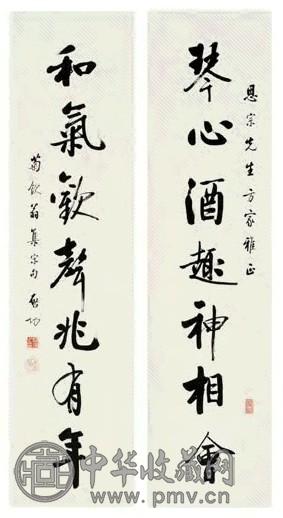 恩宗先生方家雅正
琴心酒趣神相會
和氣歡聲兆有年
菊飲翁集宗句 啓功
中华收藏网
www.pmv.cn